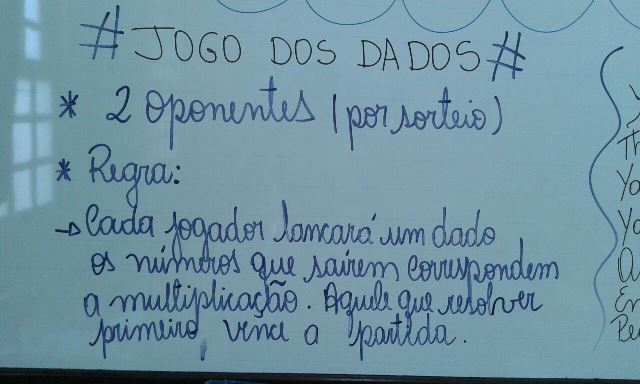 # JOGO DOS DADOS #
* 2 Oponentes (por sorteio)
* Regra:
→ Cada jogador lancará um dado
os números que saírem correspondem
a multiplicação. Aquele que resolver
primeiro, vence a partida.
Th
Yo
Yo